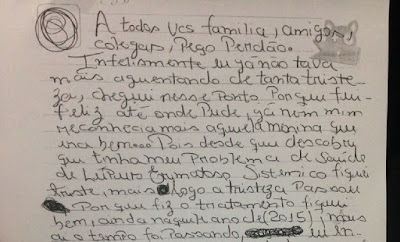 A todos vcs familia, amigos,
colegas, Peço Perdão.
Infelismente eu já não tava
mais aguentando de tanta triste-
za, cheguei nesse Ponto Porque fui
feliz até onde Pude, já nem mim
reconhecia mais aquela menina que
era bem... Pois desde que descobri
que tinha meu Problema de Saúde
de Lúpus Eritematoso Sistemico fiquei
triste, mais logo a tristeza Passou
Porque fiz o tratamento fiquei
bem, ainda naquele ano de (2015), mais
o tempo foi Passando,